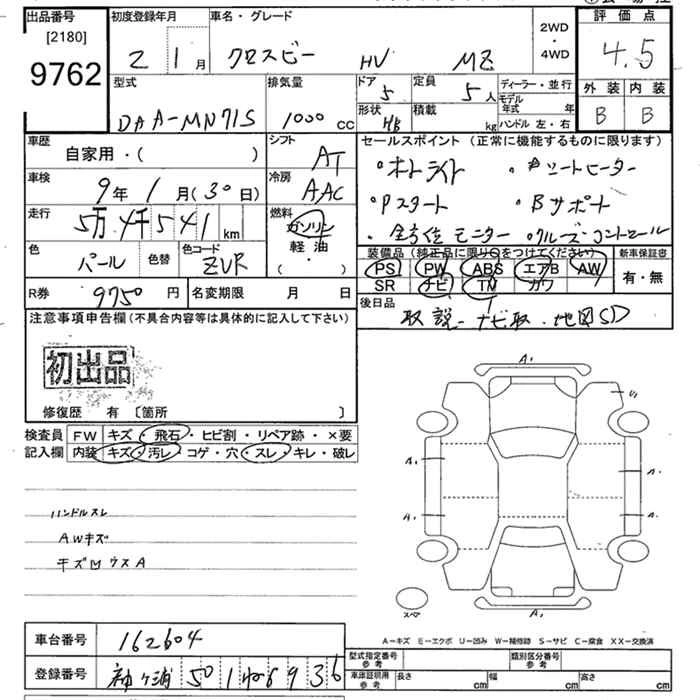 出品番号 初度登録年月 車名・グレード 評価点
[2180]
9762
2 1月 クロスビー HV MZ 2WD・4WD 4.5
型式 排気量 ドア 定員 ディーラー・並行 外装 内装
5 5人 モデル年式 年
DAA-MN71S 1000 CC 形状 HB 積載 kg ハンドル 左・右 B B
車歴 シフト セールスポイント(正常に機能するものに限ります)
自家用・( ) AT
・オートライト ・シートヒーター
車検 冷房
9年1月(30日) AAC ・Pスタート ・Bサポート
走行 燃料
5万4千541km ガソリン ・全方位モニター ・クルーズコントロール
軽油
(・)
色 パール 色替 色コード ZVR
装備品(純正品に限り○をつけてください) 新車保証書
PS PW ABS エアB AW 有・無
SR ナビ TV カワ
R券 9750円 名変期限 月 日 後日品
取説 ナビ取 地図SD
注意事項申告欄(不具合内容等は具体的に記入して下さい)
初出品
修復歴 有〔箇所 〕
検査員 FW キズ・飛石・ヒビ割・リペア跡・×要
記入欄 内装 キズ・汚レ・コゲ・穴・スレ・キレ・破レ
A1
U1
A1 A1
ハンドルスレ
A1 A1
AWキズ
キズ凹ウスA
スペア
A1
A-キズ E-エクボ U-凹み W-補修跡 S-サビ C-腐食 XX-交換済
車台番号 162604
型式指定番号 参考 類別区分番号 参考
登録番号 袖ヶ浦 50 936
車庫証明用 参考 長さ cm 幅 cm 高さ cm